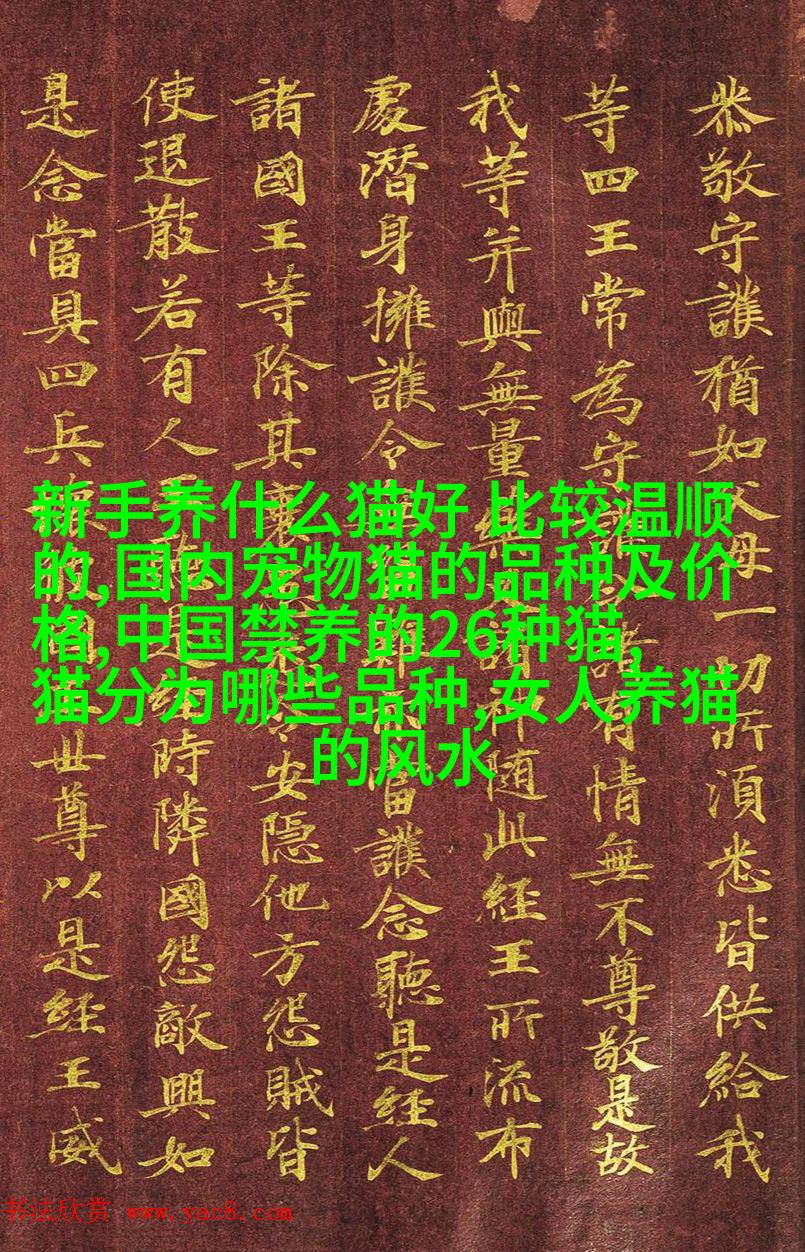 恭敬守護猶如父母一切所須悉皆供給我
等四王常為守諸有情無不尊敬是故
我等并與無量諸神隨此經王所流布
處潛身擁護令當護念聽是經人
諸國王等除其衰令安隱他方怨賊皆
使退散若有人是經時隣國怨敵興如
是念當具四兵世尊以是經王威
新手养什么猫好 比较温顺
的,国内宠物猫的品种及价
格,中国禁养的26种猫,
猫分为哪些品种,女人养猫
的风水
书法欣赏 www.yac8.com